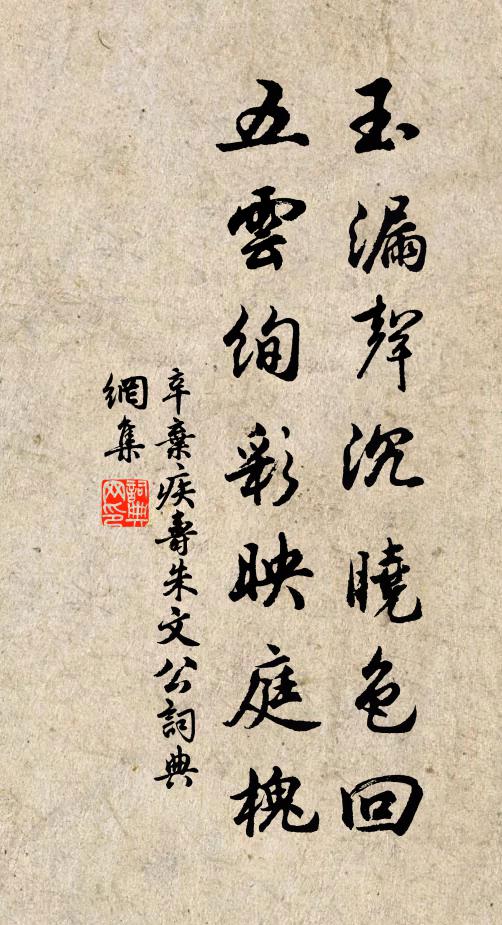 玉漏聲沉曉色回
五雲絢彩映庭槐
辛棄疾壽朱文公詞典
網集
詞典網印